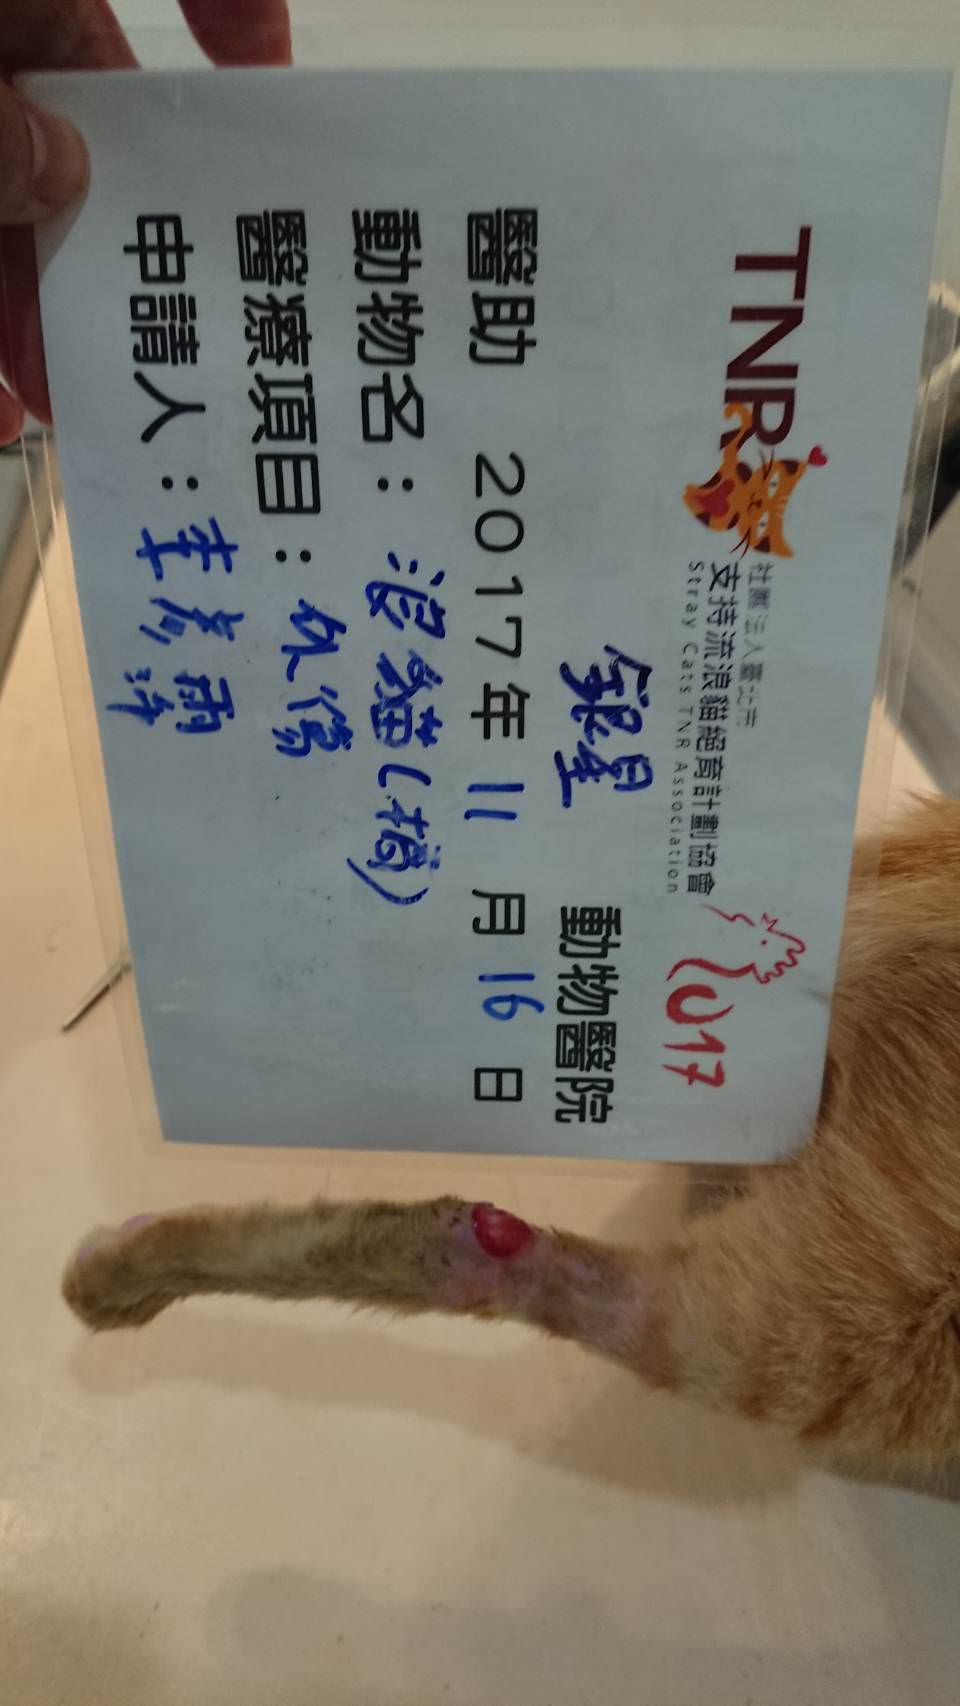 TNR
社團法人臺北市
支持流浪貓絕育計劃協會
Stray Cats TNR Association
2017
銀星 動物醫院
醫助 2017年 11 月 16 日
動物名：浪貓(橘)
醫療項目：
申請人：